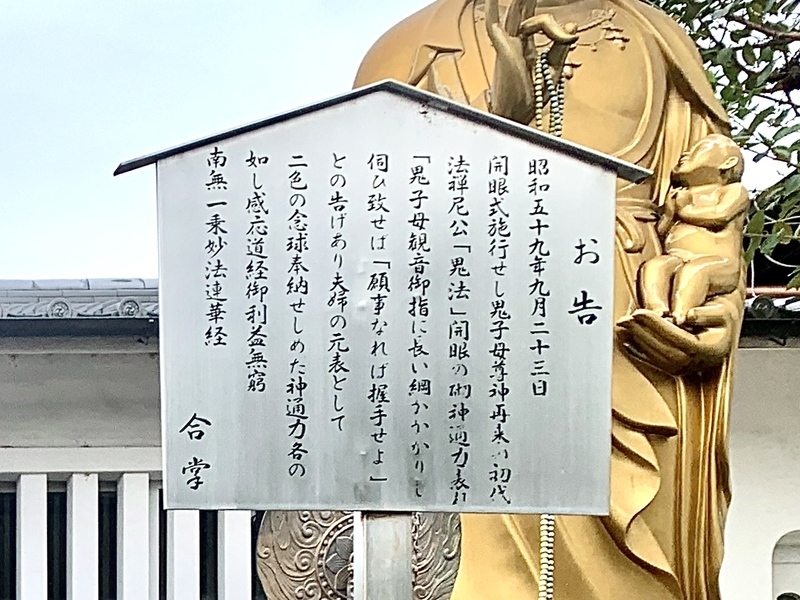 お告
昭和五十九年九月二十三日
開眼式施行せし鬼子母尊神再来の初代
法禅尼公「鬼法」開眼の砌神通力表れ
「鬼子母観音御指に長い綱かかかりし
伺ひ致せば「願事なれば握手せよ」
との告げあり夫婦の元表として
二色の念球奉納せしめた神通力各の
如し感応道経御利益無窮
南無一乗妙法連華経
合掌